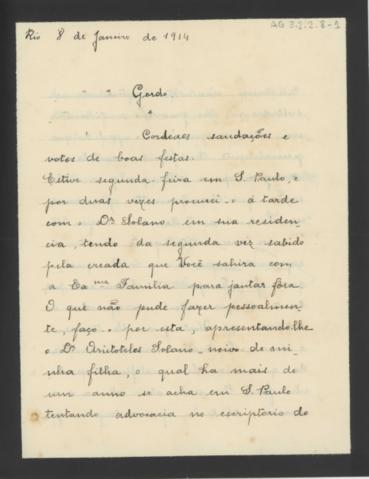 AG 3.2.2.8-1
Rio 8 de Janeiro de 1914
" " Gordo,
"
Cordeaes saudações e
votos de boas festas.
Estive segunda feira em S. Paulo, e
por duas vezes procurei-o á tarde
com o Dr Solano em sua residen-
cia, tendo da segunda vez sabido
pela creada que Você sahira com
a Exma Familia para jantar fóra.
O que não pude fazer pessoalmen-
te, faço-o por esta, apresentando-lhe
o Dr Aristoteles Solano, noivo de mi-
nha filha, o qual ha mais de
um anno se acha em S. Paulo
tentando advocacia no escriptorio do